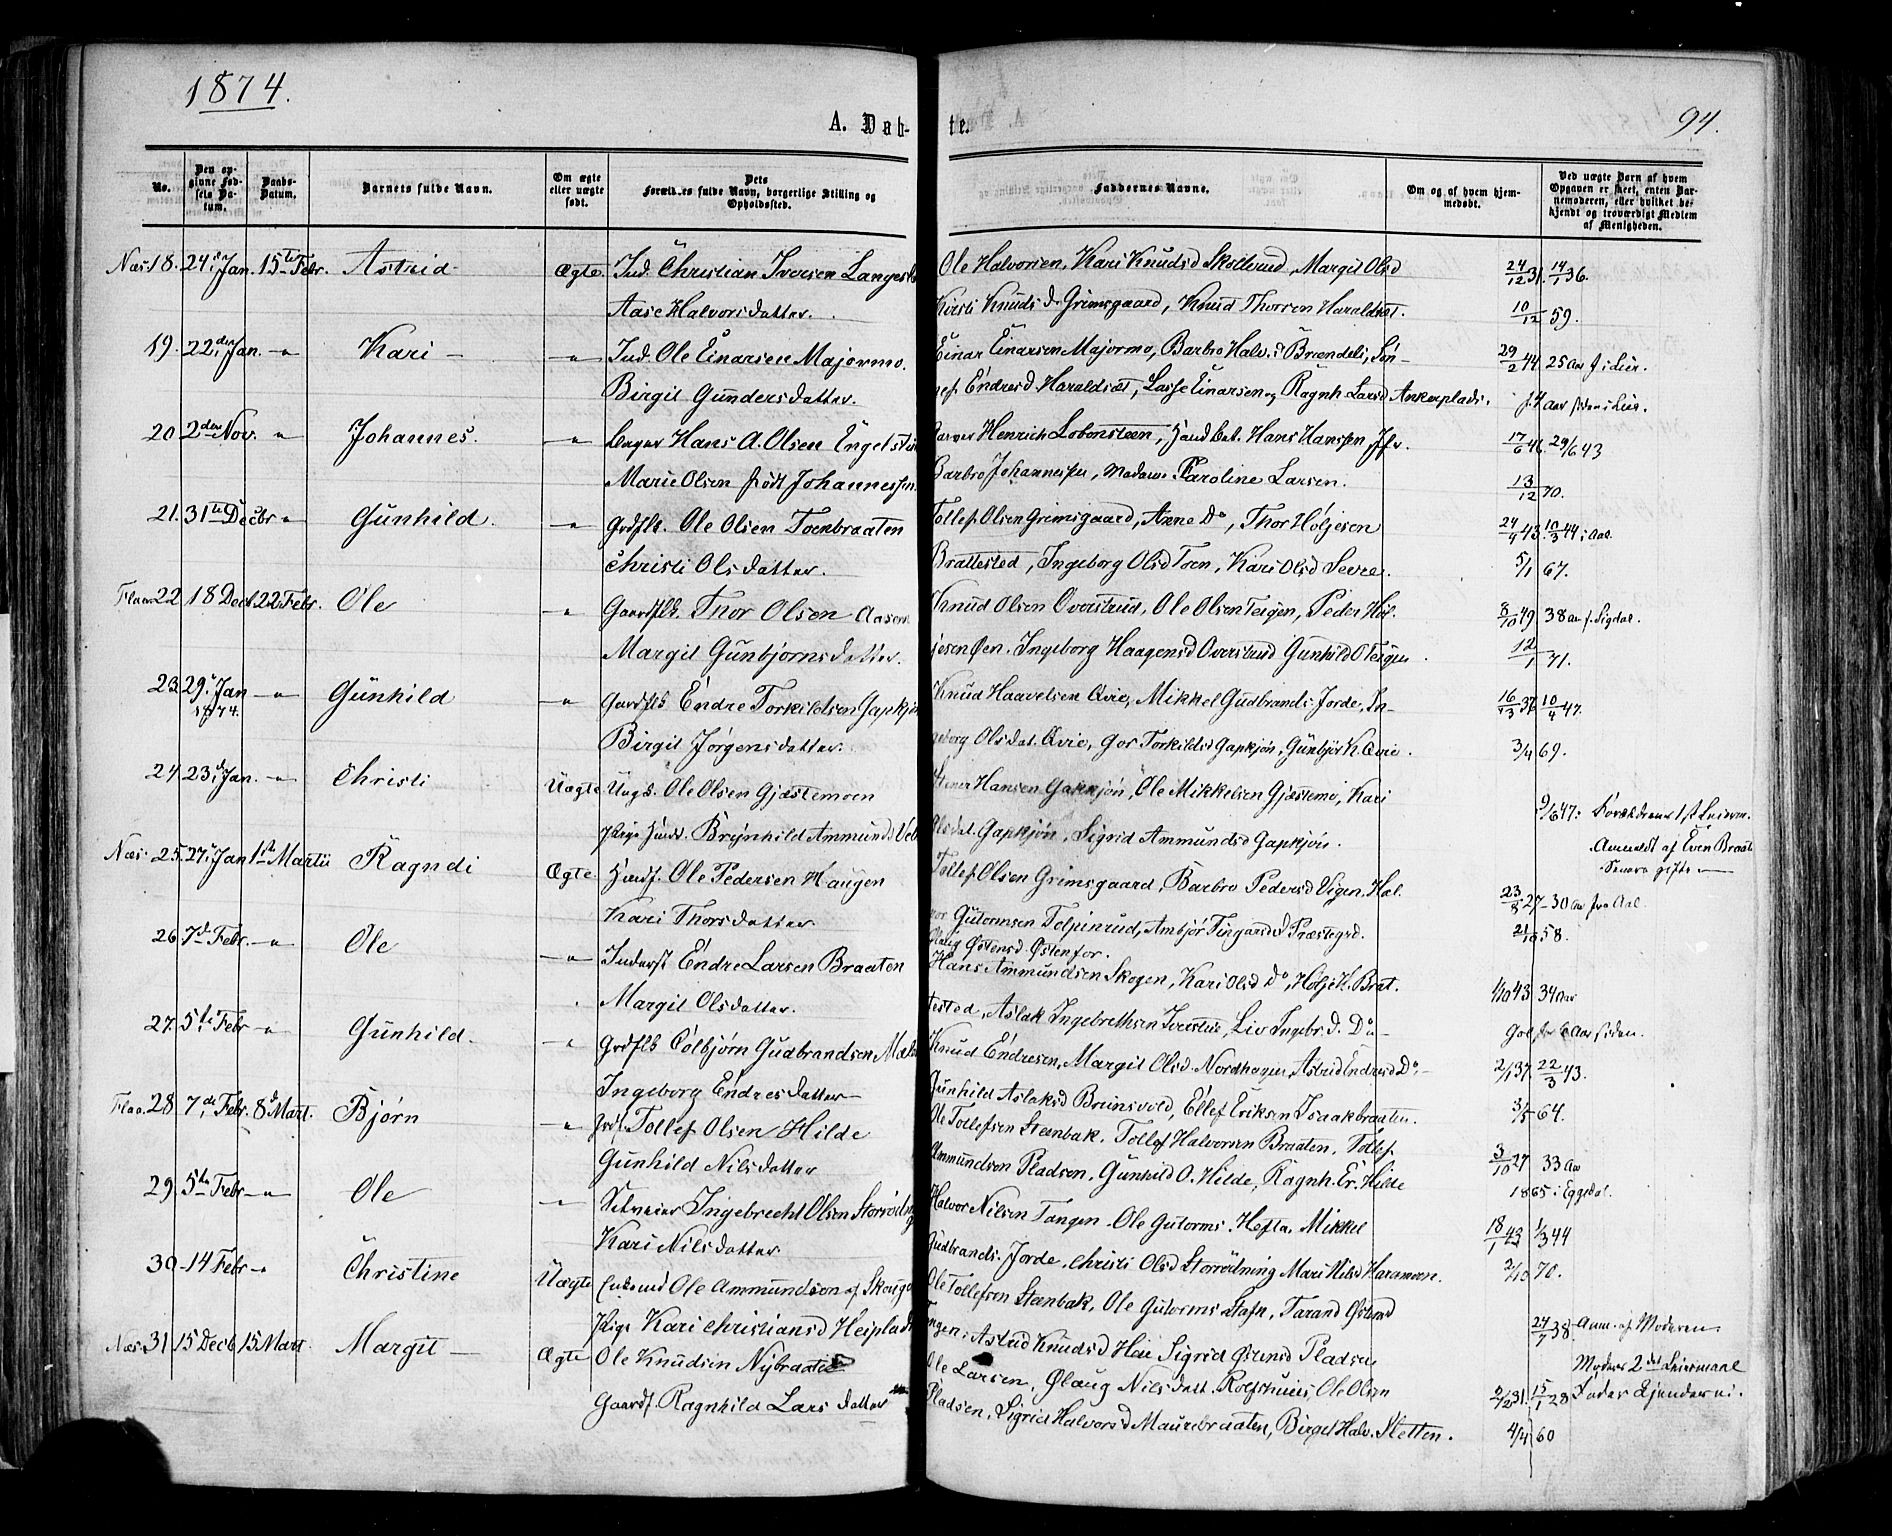 1874.
A. Døb-
te.
94.
No.
Den opgivne Fødsels Datum.
Daabs-Datum.
Barnets fulde Navn.
Om ægte eller uægte født.
Dets Forældres fulde Navn, borgerlige Stilling og Opholdssted.
Faddernes Navne.
Om og af hvem hjemmedøbt.
Ved uægte Børn af hvem Opgaven er skeet, enten Barnemoderen, eller hvilket bekjendt og troværdigt Medlem af Menigheden.
Næs 18. 24de Jan. 15te Febr. Astrid Ægte. Ind. Christian Iversen Ole Halvorsen, Kari Knudsd Skollerud, Margit Olsd 24/12 31. 14/1 36.
Aase Halvorsdatter. Kirsti Knudsd. Grimsgaard, Knud Thorsen Haraldset. 10/12 59.
19. 22den Jan. -"- Kari - -"- Ind. Ole Einarsen Majormo. Einar Einarsen Majormo, Barbro Halv.d Brændeli, Søn- 29/2 44 25 Aar f. i Lier.
Birgit Gundersdatter. Endresd Haraldsæt, Lasse Einarsen og Ragnh Larsd Ankerplads. Aar siden i Lier.
20. 2den Nov. " Johannes. -"- Hans A. Olsen Garver Henrich Lobonsteen, Hans Hanssen 17/6 29/6 43
Marie Olsen født Johannessen. Barbro Johannessen, Madame Karoline Larsen. 13/12 70.
21. 31te Decbr " Gunhild. -"- Grdflb. Ole Olsen Toenbraaten Tollef Olsen Grimsgaard, Anne Do, Thor Holjesen 24/4 43. 10/3 44 i Aal.
Christi Olsdatter. Brattested, Ingeborg Olsd Toen, Kari Olsd Sevre. 5/1 67.
Flaa 22 18 Decb. 22 Febr. Ole -"- Gaardflb. Thor Olsen Aasen Knud Olsen Overstrud, Ole Olsen Teigen, Peder Hol- 8/10 49 38 Aar f. Sigdal.
Margit Gunbjørnsdatter. jesen Øen. Ingeborg Haagensd Overstrud Gunhild O Teigen. 12/1 71.
23. 29de Jan 1874. -"- Gunhild -"- Gaardflb Endre Torkildsen Gapkjøn Knud Haavelsen Qvie, Mikkel Gudbrands. Jorde, In- 16/3 37 10/4 47.
Birgit Jørgensdatter. geborg Olsdat. Qvie, Torkildsd Gapkjøn, Gunbjør K. Qvie. 3/4 69.
24. 23de Jan. -"- Christi Uægte Ungk. Ole Olsen Gjæstemoen Hansen Gapkjøn, Ole Mikkelsen Gjæstemo, Kari 9/6 47: Forældrenes 1ste
Pige Brynhild Ammunds Olsdat. Gapkjøn, Sigrid Ammundsd Gapkjøn. Anmeldt af Even Braat
Senere gifte
Næs. 25. 27de Jan 1ste Martii Ragndi Ægte Husf. Ole Pedersen Haugen Tollef Olsen Grimsgaard, Barbro Pedersd Vigen, Hal. 23/8 27 30 Aar fra Aal.
Kari Thorsdatter vor Gutormsen Toljerud, Ambjør Fingarsd Præstegrd. 21/10 58.
Østensd. Østenfor.
26. 7de Febr. -"- Ole -"- Inderst Endre Larsen Braaten Hans Ammundsen Skogen, Kari Olsd Do, Holje K. Brat. 1/10 43 34 Aar
Margit Olsdatter. tested, Aslak Ingebrethsen Liv Ingebr.d. Do- Gol for 6 Aar siden.
27. 5te Febr " Gunhild. -"- Grdflb Colbjørn Gudbrandsen Knud Endresen, Margit Olsd. Nordhagen, Astrid Endresd Do,- 2/1 37. 22/3 43.
Ingeborg Endresdatter Gunhild Aslaksd Brunsvold, Ellef Eriksen Isaakbraaten. 3/5 64.
Flaa. 28 7de Febr. 8de Mart. Bjørn -"- Grdf. Tollef Olsen Hilde Ole Tollefsen Stenbak. Tollef Halvorsen Braaten, Tollef 3/10 27 33 Aar
Gunhild Nilsdatter Ammundsen Pladsen, Gunhild O. Hilde, Ragnh. Er. Hilde 1865 i Eggedal.
29. 5te Febr -"- Ole -"- Selveier Ingebrecht Olsen Storrølning Halvor Nilsen Tangen. Ole Gutorms. Hefta. Mikkel 18/1 43 1/3 44
Kari Nilsdatter Gudbrands. Jorde, Christi Olsd Storrølning Mari Nilsd Haramoen. 2/10 70.
30 14 Febr -"- Christine Uægte Enkemd Ole Ammundson af Skoug Ole Tollefsen Stenbak, Ole Gutorms Stafn, Tarand Østensd
Pige Kari Christiansd Heiplads Tangen: Astrid Knudsd Hei Sigrid Østensd Pladsen 24/7 38. Anm. af Moderen
Moders 2det Leiermaal
Næs. 31 15 Decb 15 Mart. Margit Ægte Ole Knudsen Nybraaten Ole Larsen, Ølaug Nilsdatt. Rolfshuus, Ole Olsen 2/2 31. 15/1 28
Gaardf. Ragnhild Larsdatter Pladsen, Sigrid Halvorsd Maurebraaten, Birgit Halv. Sletten. 4/4 60